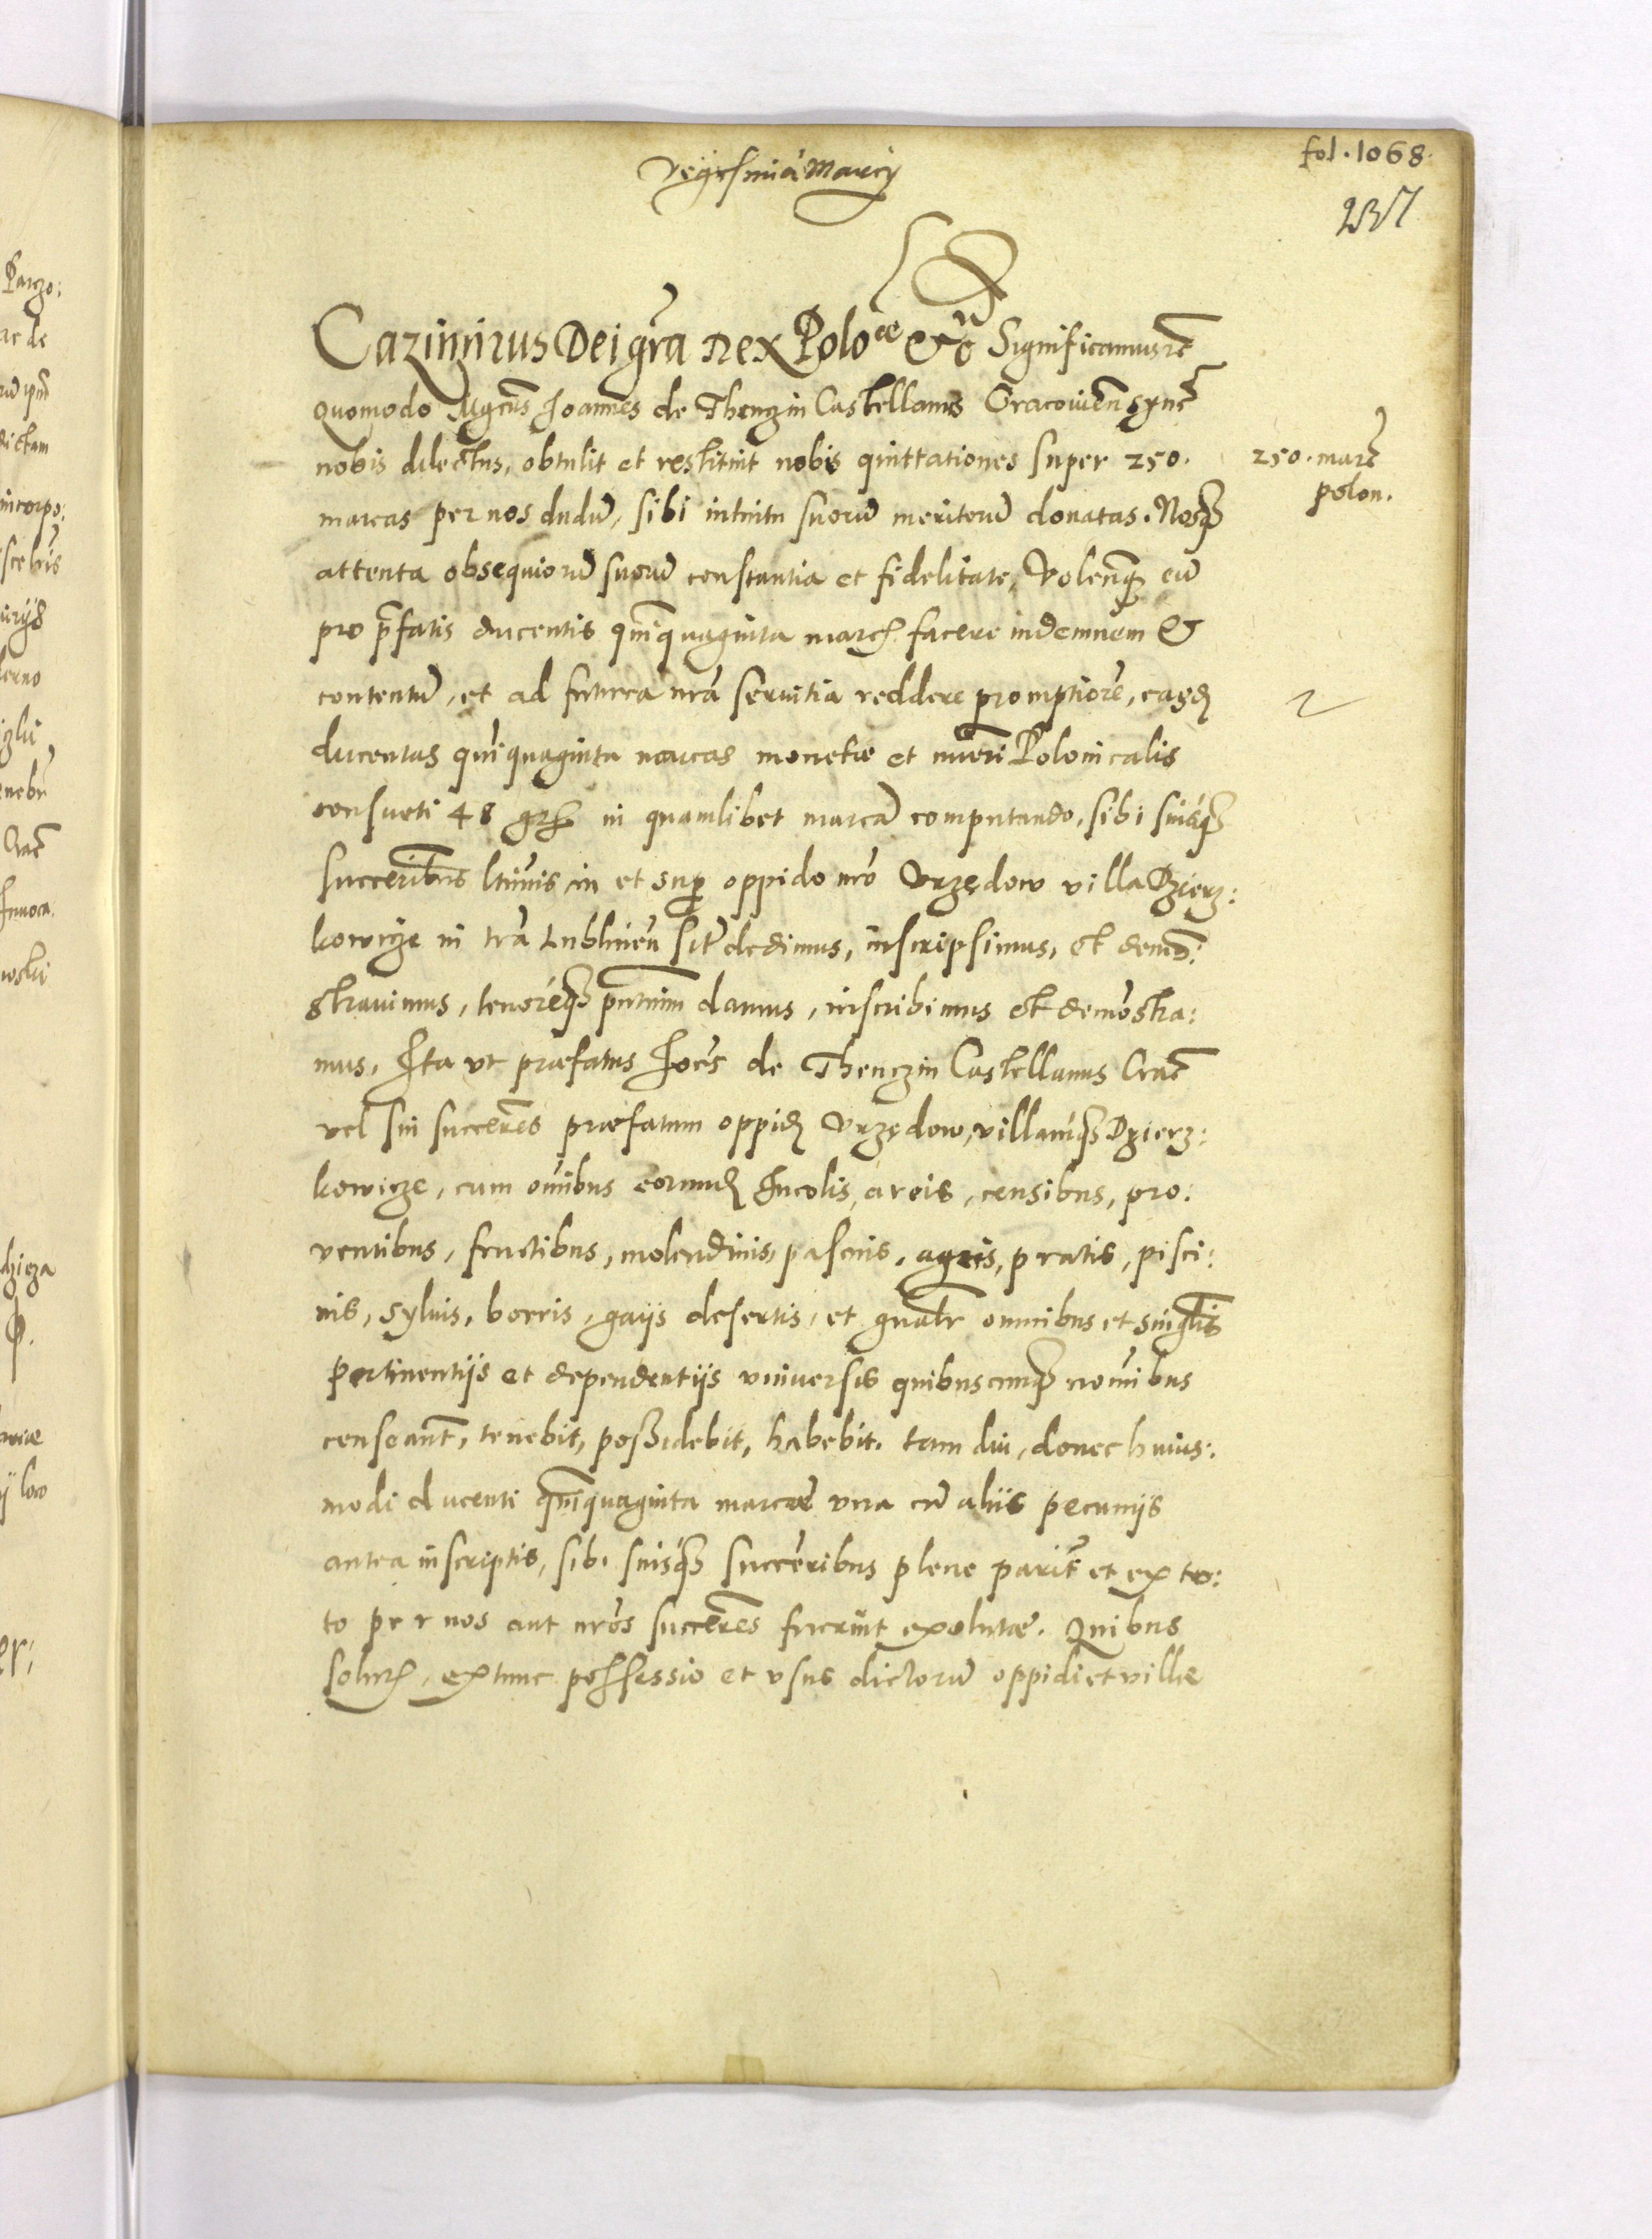 fol. 1068.
237
Vigesima Marcij
Cazimirus Dei gra Rex Poloae &c Significamus tc
quomodo Mgcus Joannes de Thenczin Castellanus Cracouien sync
nobis dilectus, obtulit et restituit nobis quittationes super 250.
250. marc
polon.
marcas per nos dudu, sibi intuitu suoru meritoru donatas. Nosq
attenta obsequioru suoru constantia et fidelitate, Volenq eu
pro pfatis ducentis quiquaginta marc facere indemnem &
contentu, et ad futura nra seruitia reddere promptiore, easd
ducentas quiquaginta marcas monetæ et nueri Polonicalis
consueti 48 gr in quamlibet marca computando, sibi suisq
succeribus ltimis in et sup oppido nro Vrzędow villa Dzierz:
kowicze in tra Lublinen sit dedimus, inscripsimus, et demo:
strauimus, tenoreq pntium damus, inscribimus et demostra:
mus, Ita vt præfatus Joes de Thenczin Castellanus Crac
vel sui succeres præfatum oppid Vrzędow, villamq Dzierz:
kowicze, cum oibus eorumd Incolis, areis, censibus, pro:
uentibus, fructibus, molendinis, pascuis, agris, pratis, pisci:
nis, syluis, borris, gaijs desertis, et gnalr omnibus et singlis
pertinentijs et dependentijs vniuersis quibuscunq noibus
censeant, tenebit, possidebit, habebit. tam diu, donec huius:
modi ducenti quiquaginta marcæ vna cu alijs pecunijs
antea inscriptis, sibi suisq succeribus plene parit et ex to:
to per nos aut nros succeres fuerint exolutæ. Quibus
solut, extunc possessio et vsus dictoru oppidi et villæ